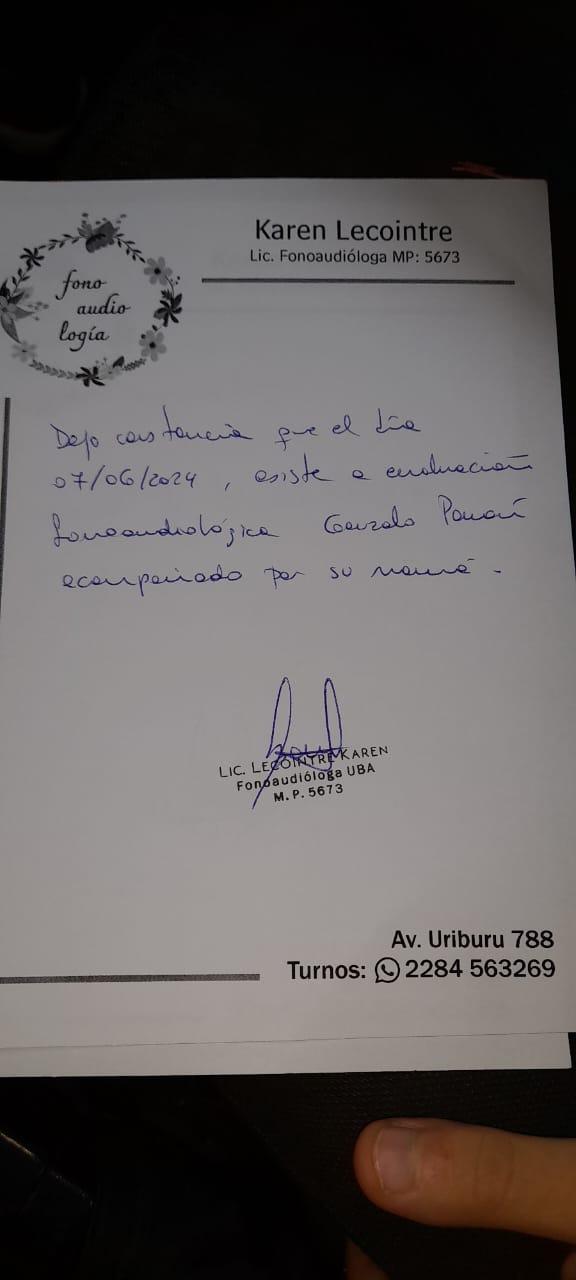 Karen Lecointre
Lic. Fonoaudióloga MP: 5673
fono
audio
logía
Dejo constancia que el día
07/06/2024, asiste a evaluación
fonoaudiológica Gonzalo
acompañado por su mamá.
LIC. LECOINTRE KAREN
Fonoaudióloga UBA
M.P. 5673
Av. Uriburu 788
Turnos: 2284 563269